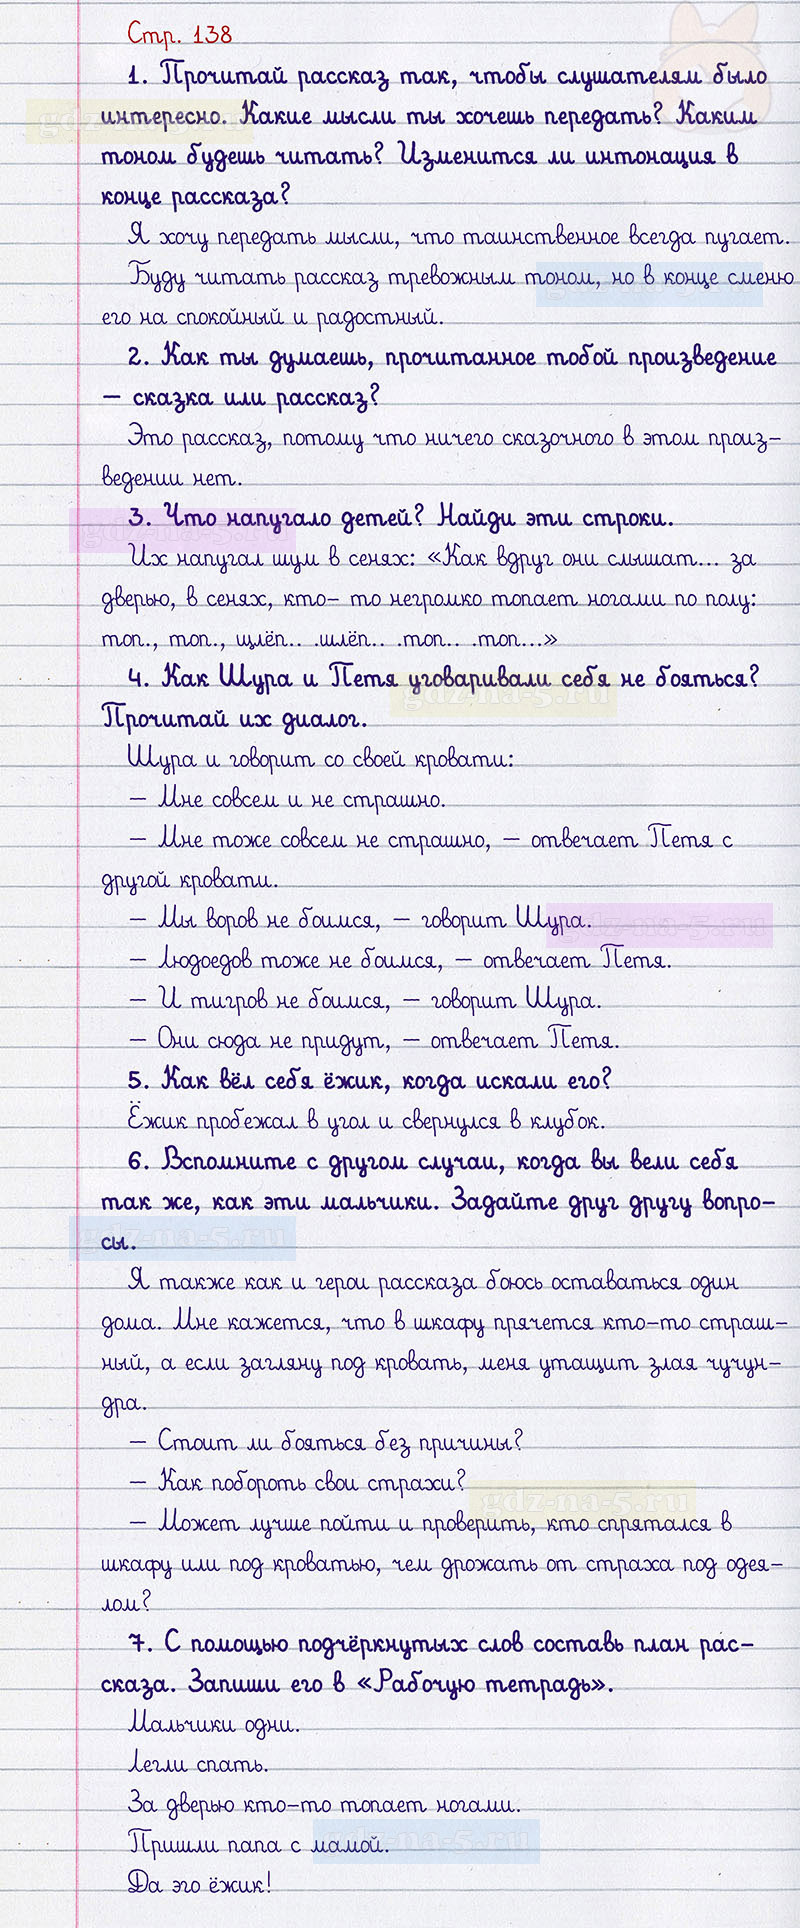 Стр. 138
1. Прочитай рассказ так, чтобы слушателям было
интересно. Какие мысли ты хочешь передать? Каким
тоном будешь читать? Изменится ли интонация в
конце рассказа?
Я хочу передать мысли, что таинственное всегда пугает.
Буду читать рассказ тревожным тоном, но в конце сменю
его на спокойный и радостный.
2. Как ты думаешь, прочитанное тобой произведение
– сказка или рассказ?
Это рассказ, потому что ничего сказочного в этом произ-
ведении нет.
3. Что напугало детей? Найди эти строки.
Их напугал шум в сенях: «Как вдруг они слышат... за
дверью, в сенях, кто- то негромко топает ногами по полу:
топ., топ., щлёп.. .шлёп.. .топ.. .топ...»
4. Как Шура и Петя уговаривали себя не бояться?
Прочитай их диалог.
Шура и говорит со своей кровати:
– Мне совсем и не страшно.
– Мне тоже совсем не страшно, – отвечает Петя с
другой кровати.
– Мы воров не боимся, – говорит Шура.
– Людоедов тоже не боимся, – отвечает Петя.
– И тигров не боимся, – говорит Шура.
– Они сюда не придут, – отвечает Петя.
5. Как вёл себя ёжик, когда искали его?
Ёжик пробежал в угол и свернулся в клубок.
6. Вспомните с другом случаи, когда вы вели себя
так же, как эти мальчики. Задайте друг другу вопро-
сы.
Я также как и герои рассказа боюсь оставаться один
дома. Мне кажется, что в шкафу прячется кто-то страш-
ный, а если загляну под кровать, меня утащит злая чучун-
дра.
– Стоит ли бояться без причины?
– Как побороть свои страхи?
– Может лучше пойти и проверить, кто спрятался в
шкафу или под кроватью, чем дрожать от страха под одея-
лом?
7. С помощью подчёркнутых слов составь план рас-
сказа. Запиши его в «Рабочую тетрадь».
Мальчики одни.
Легли спать.
За дверью кто-то топает ногами.
Пришли папа с мамой.
Да эго ёжик!
gdz-na-5.ru
gdz-na-5.ru
gdz-na-5.ru
gdz-na-5.ru
gdz-na-5.ru
gdz-na-5.ru
gdz-na-5.ru
gdz-na-5.ru